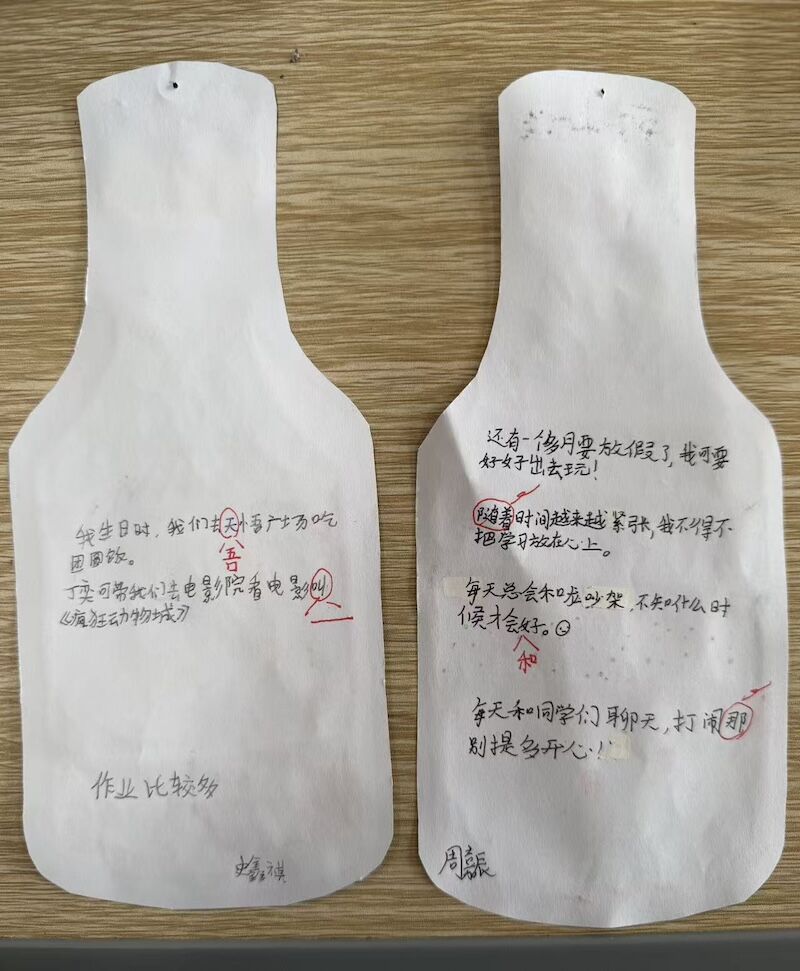 我生日时，我们去天悟广场吃
团圆饭。
吾
丁奕可带我们去电影院看电影叫
《疯狂动物城》
作业比较多
史鑫祺
还有一个多月要放假了，我可要
好好出去玩！
随着时间越来越紧张，我不得不
把学习放在心上。
每天总会和 吵架，不知什么时
候才会好。
和
每天和同学们聊天，打闹那
别提多开心！
周振